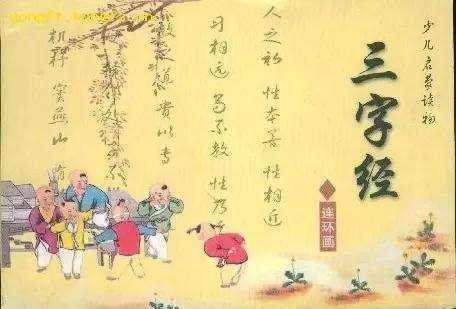 少儿启蒙读物
三字经
连环画
人之初 性本善 性相近
习相远 苟不教 性乃
教之道 贵以专
机杼 窦燕山 有